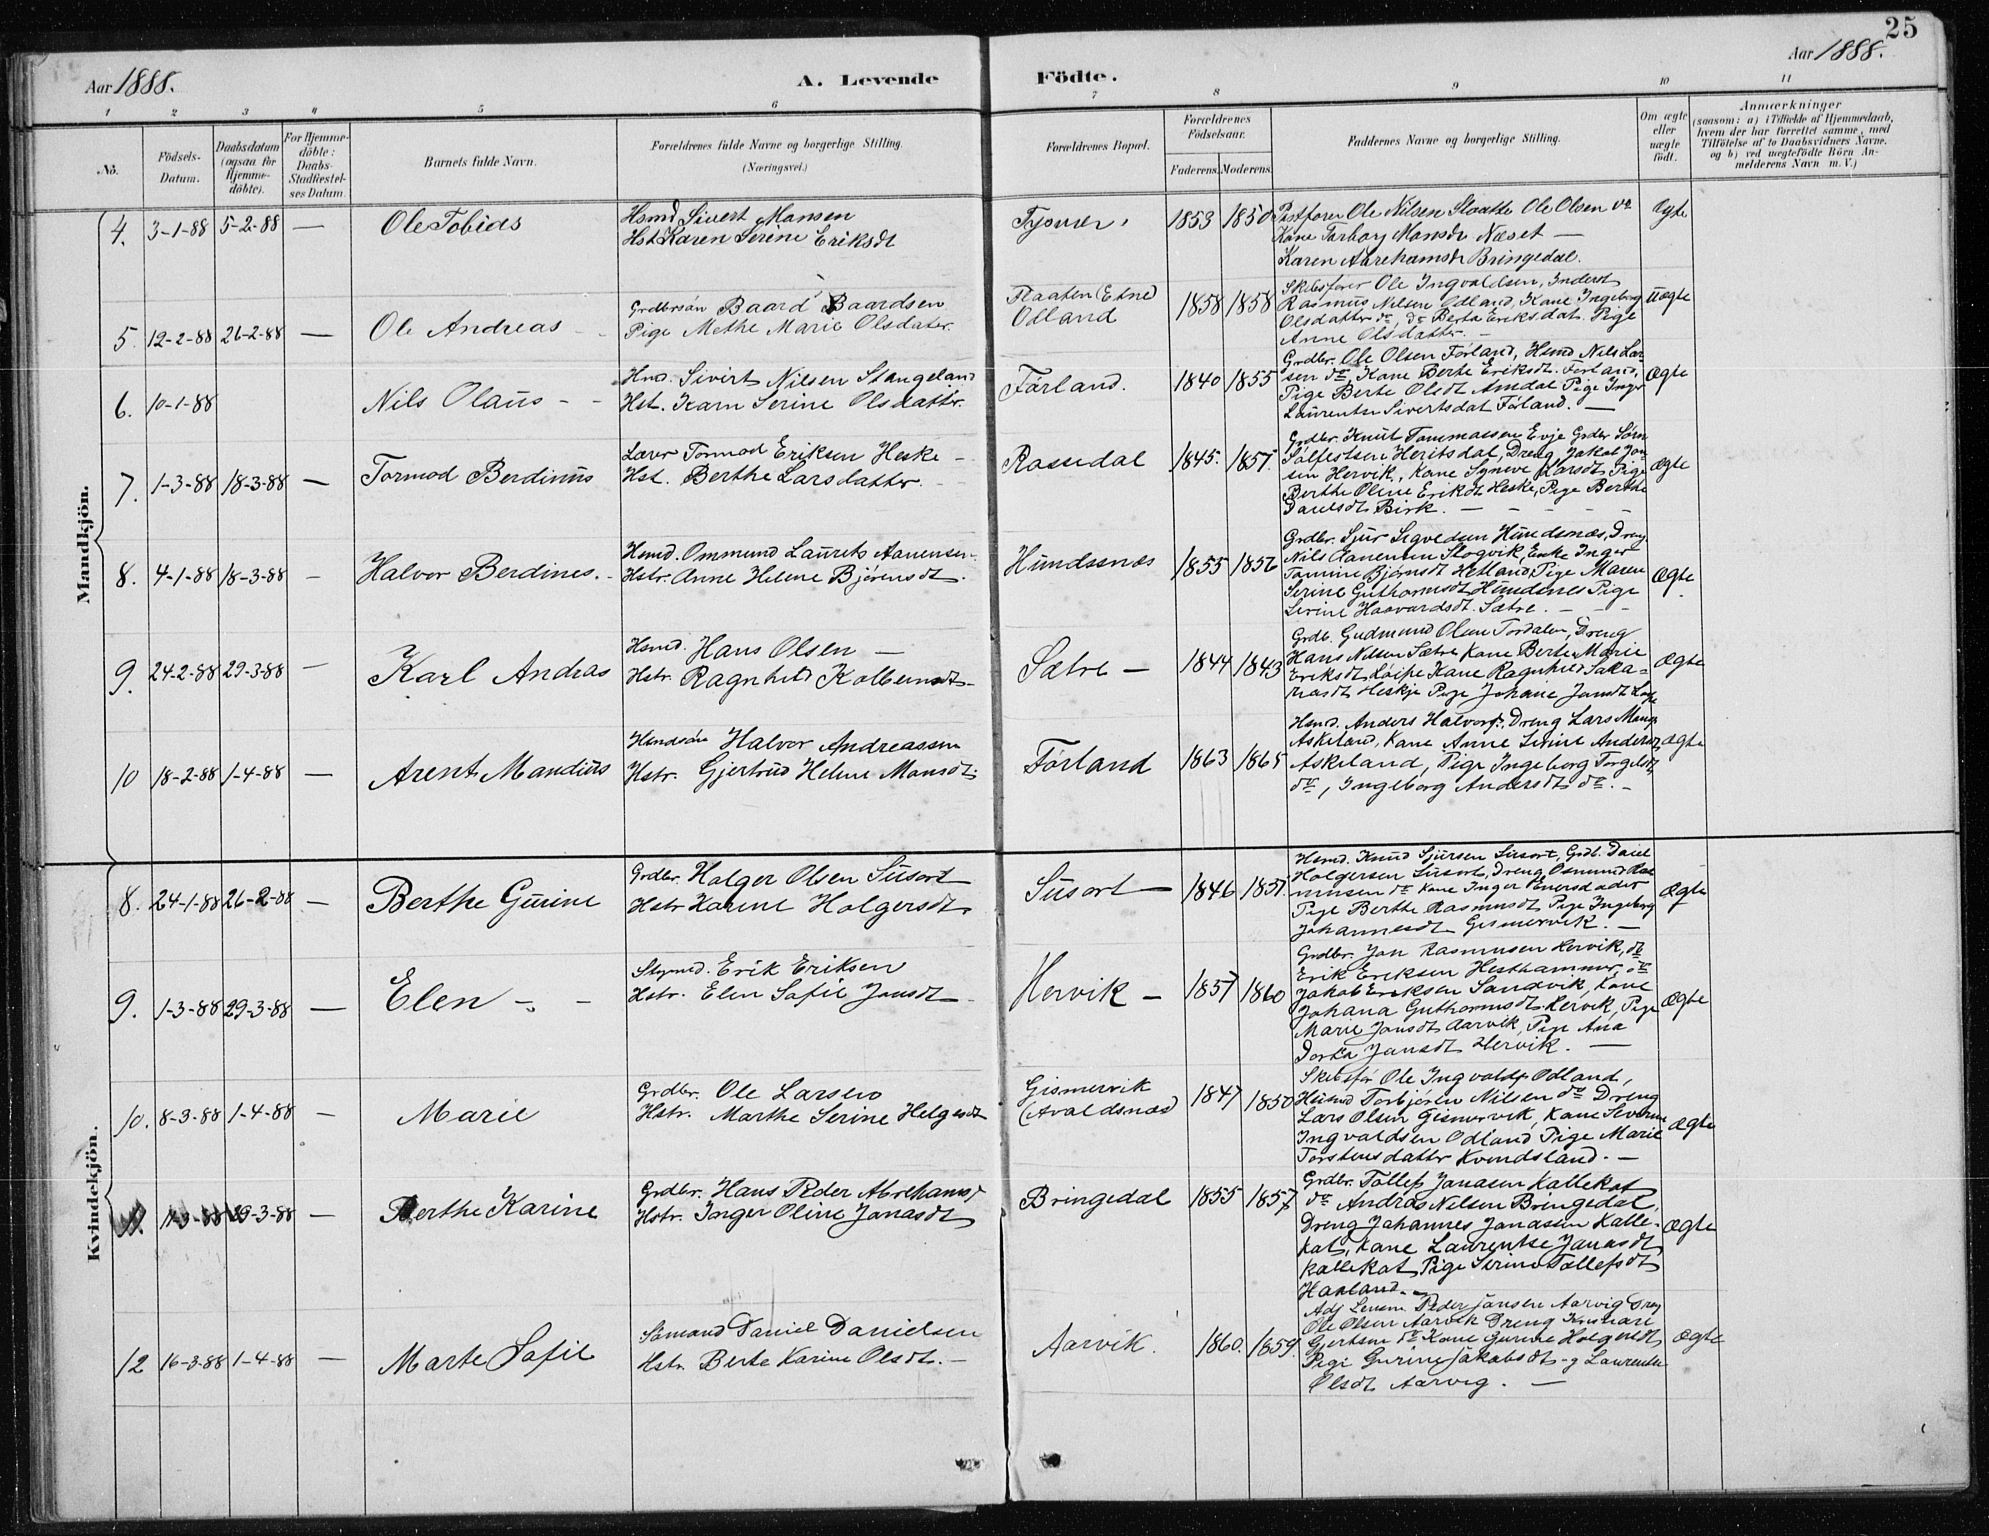 25
Aar 1888.
A. Levende Födte.
Aar 1888.
1 2 3 4 5 6 7 8 9 10 11
No.
Födsels-Datum.
Daabsdatum (ogsaa for Hjemme-döbte).
For Hjemme-döbte: Daabs-Stadfæstel-ses Datum.
Barnets fulde Navn.
Forældrenes fulde Navne og borgerlige Stilling. (Næringsvei.)
Forældrenes Bopæl.
Forældrenes Födselsaar.
Faderens. Moderens.
Faddernes Navne og borgerlige Stilling.
Om ægte eller uægte födt.
Anmærkninger
(saasom: a) i Tilfælde af Hjemmedaab, hvem der har forrettet samme, med Tilföielse af to Daabsvidners Navne. og b) ved uægtefödte Börn An-melderens Navn m. V.)
Mandkjön.
4. 3-1-88 5-2-88 — Ole Tobias
Hsmd Sivert Monsen
Hst. Karen Serine Eriksdt
Tysvær. 1853 1850
Ole Nilsen Slaatte Ole Olsen do
Kone Torborg Monsdr Næset —
Karen Abrehamsdr Bringedal.
Ægte
5. 12-2-88 26-2-88 — Ole Andreas
Grdbrsön Baard Baardsen
Pige Methe Marie Olsdater.
Flaaten (Etne)
Odland
1858 1858
Skibsfører Ole Ingvaldsen, Inderst
Rasmus Nilsen Odland, Kone Ingeborg
Olsdatter do, do Berta Eriksdat. Pige
Anne Olsdatter. —
Uægte
6. 10-1-88 Nils Olaus - -
Hmd. Sivert Nilsen Stangeland
Hst. Karn Serine Olsdatter.
Førland. 1840 1855
Grdbr. Ole Olsen Førland, Hsmd Nils Lar-
sen do Kone Berte Eriksdt. Førland,
Pige Berte Olsdt Amdal Pige Inger
Laurentse Sivertsdat Førland. —
Ægte
7. 1-3-88 18-3-88 — Tormod Berdinus
Lærer Tormod Eriksen Heske —
Hst. Berthe Larsdatter.
Rossedal 1845. 1857.
Grdbr. Knut Tommassen Evje Grdbr Sörn
Solfestsen Heritsdal, Dreng Jakob Jon-
sen Hervik, Kone Syneve Larsdt, Pige
Berthe Oline Eriksdt Heske, Pige Berthe
Danelsdt Birk. — — — —
Ægte
8. 4-1-88 18-3-88 - Halvor Berdines. -
Hsmd. Ommund Laurets Aanensen
Hstr. Anne Helene Bjørensdt.
Hundssnæs 1855 1856
Grdbr. Sjur Sigvedsen Hundsnæs, Dreng
Nils Aanensen Slogvik, Enke Inger
Tomine Bjørnsdt Hetland, Pige Maren
Serine Guthormsdt Hundsnes Pige
Serine Haavardsdt. Sætre. — — —
Ægte
9. 24-2-88 29-3-88 — Karl Andras
Hsmd. Hans Olsen —
Hstr. Ragnhild Kolbensdt —
Sætre — 1844 1843
Grdb. Gudmund Olsen Tordalen, Dreng
Hans Nilsen Sætre Kone Berte Marie
Eriksdt Løipe Kone Ragnhild Saka-
riasdt Heskje Pige Johane Jansdt
Ægte
10 18-2-88 1-4-88 — Arent Mandius
Hsmdsøn Halvor Andreassen
Hstr. Gjertrud Helene Monsdt.
Førland 1863 1865
Hsmd. Anders Halvors. Dreng Lars Mons
Askeland, Kone Anne Serine Andersdt
Askeland, Pige Ingeborg Torgelsdt,
do, Ingeborg Andersdt do. —
Ægte
Kvindekjön.
8. 24-1-88 26-2-88 — Berthe Gurine
Grdbr. Holger Olsen Susort
Hstr Karine Holgersdt
Susort — 1846 1851.
Hsmd. Knud Sjursen Susort, Grdb. Daniel
Holgersen Susort, Dreng Osmund Ras-
musen do Kone Inger Enersdader
Pige Berthe Rasmusdt Pige Ingeborg
Johannesdt Gismervik. —
Ægte
9. 1-3-88 29-3-88 — Elen - -
Styrmd. Erik Eriksen
Hstr. Elen Sofie Jonsdt —
Hervik — 1857 1860
Grdbr. Jon Rasmusen Hervik, do
Erik Eriksen Hesthammer, do
Jakob Eriksen Sandvik, Kone
Johana Guthormsdt. Hervik, Pige
Marie Jonsdt Aarvik, Pige Ana
Dortia Jonsdt Hervik. —
Ægte
10. 8-3-88 1-4-88 — Marie
Grdbr. Ole Larsen
Hstr. Marthe Serine Helgesdt
Gismervik
(Avaldsnæs)
1847 1850
Skibsfør Ole Ingvalds. Odland,
Husmd Torbjörn Nilsen do Dreng
Lars Olsen Gismervik, Kone Severine
Ingvaldsen Odland Pige Marie
Torstensdatter Kvindsland. —
Ægte
11. 11-3-88 29-3-88 — Berthe Karine
Grdbr. Hans Peder Abrehams.
Hstr. Inger Oline Jonasdt
Bringedal 1855 1857
Grdbr. Tollef Jonasen Kallekot
do Andras Nilsen Bringedal,
Dreng Johannes Jonassen Kalle-
kot, Kone Laurentse Jonasdt
Kallekot, Pige Serine Tollefsdt
Haaland. —
Ægte
12 16-3-88 1-4-88 — Marte Sofie
Sömand Daniel Danielsen
Hstr. Berte Karine Olsdt. —
Aarvik. 1860. 1859.
Adj Lensm. Peder Jansen Aarvig Dreng
Ole Olsen Aarvik Dreng Kristian
Gjertsen do Kone Gurine Holgersdt,
Pige Gurine Jakobsdt - g Laurentse
Olsdt Aarvig. —
Ægte